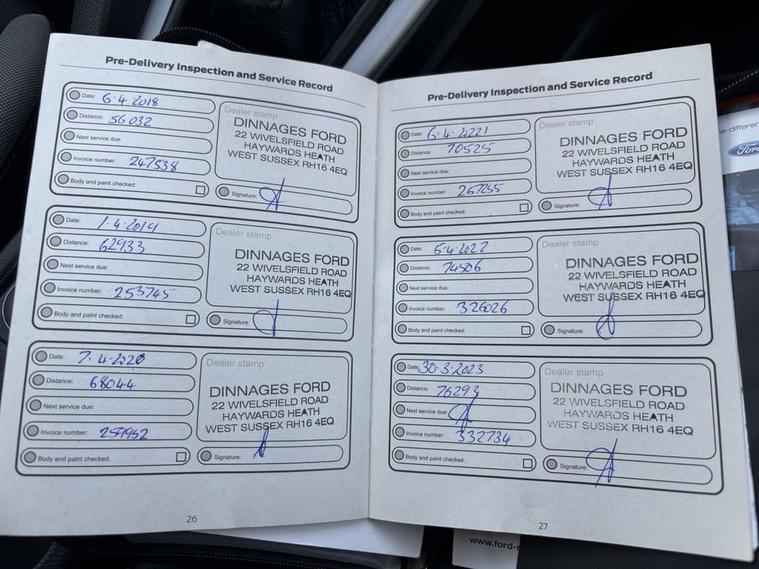 Pre-Delivery Inspection and Service Record
Date: 6·4·2018
Distance: 56032
Next service due:
Invoice number: 247538
Body and paint checked:
Dealer stamp
DINNAGES FORD
22 WIVELSFIELD ROAD
HAYWARDS HEATH
WEST SUSSEX RH16 4EQ
Signature:
Date: 1·4·2019
Distance: 62933
Next service due:
Invoice number: 253745
Body and paint checked:
Dealer stamp
DINNAGES FORD
22 WIVELSFIELD ROAD
HAYWARDS HEATH
WEST SUSSEX RH16 4EQ
Signature:
Date: 7·4·2020
Distance: 68044
Next service due:
Invoice number:
Body and paint checked:
Dealer stamp
DINNAGES FORD
22 WIVELSFIELD ROAD
HAYWARDS HEATH
WEST SUSSEX RH16 4EQ
Signature:
26
Pre-Delivery Inspection and Service Record
Date: 6·4·2021
Distance: 70525
Next service due:
Invoice number: 267255
Body and paint checked:
Dealer stamp
DINNAGES FORD
22 WIVELSFIELD ROAD
HAYWARDS HEATH
WEST SUSSEX RH16 4EQ
Signature:
Date: 5·4·2022
Distance: 74506
Next service due:
Invoice number: 326026
Body and paint checked:
Dealer stamp
DINNAGES FORD
22 WIVELSFIELD ROAD
HAYWARDS HEATH
WEST SUSSEX RH16 4EQ
Signature:
Date: 30·3·2023
Distance: 76293
Next service due:
Invoice number: 332734
Body and paint checked:
Dealer stamp
DINNAGES FORD
22 WIVELSFIELD ROAD
HAYWARDS HEATH
WEST SUSSEX RH16 4EQ
Signature:
27
Ford
www.ford-